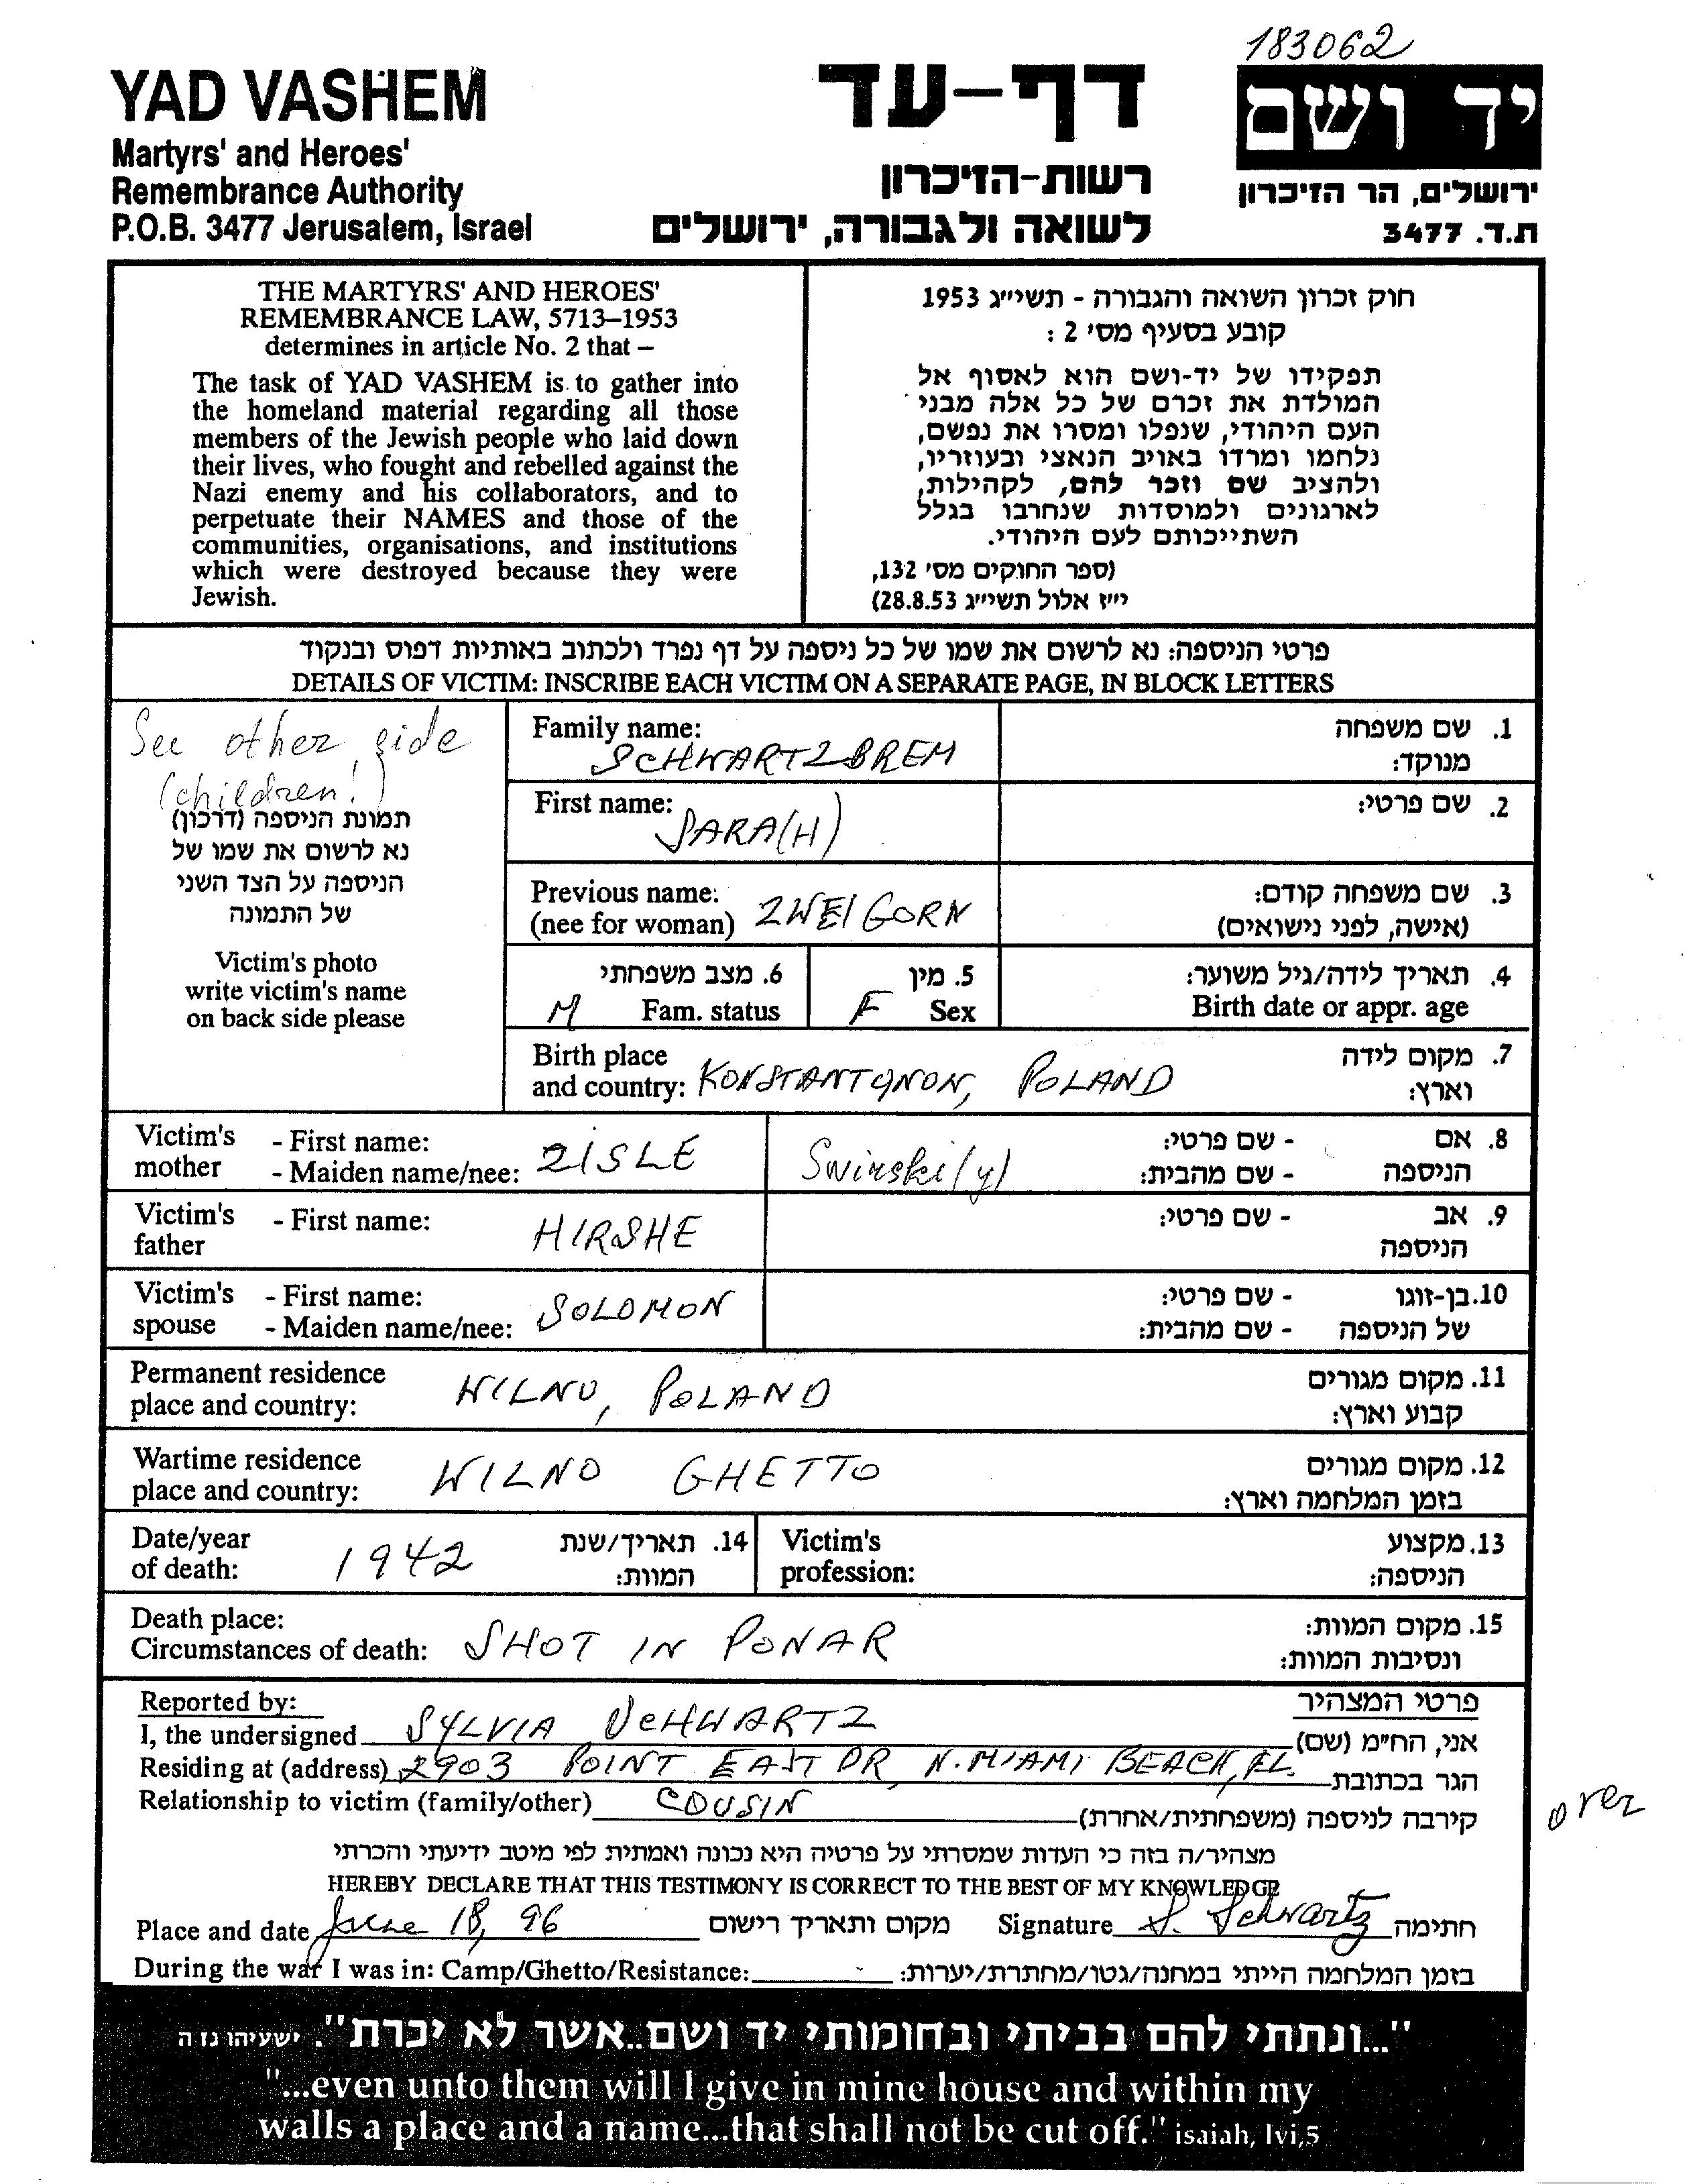 183062
YAD VASHEM
Martyrs' and Heroes'
Remembrance Authority
P.O.B. 3477 Jerusalem, Israel
דף-עד
רשות-הזיכרון
לשואה ולגבורה, ירושלים
יד ושם
ירושלים, הר הזיכרון
ת.ד. 3477
THE MARTYRS' AND HEROES'
REMEMBRANCE LAW, 5713–1953
determines in article No. 2 that –
The task of YAD VASHEM is to gather into
the homeland material regarding all those
members of the Jewish people who laid down
their lives, who fought and rebelled against the
Nazi enemy and his collaborators, and to
perpetuate their NAMES and those of the
communities, organisations, and institutions
which were destroyed because they were
Jewish.
חוק זכרון השואה והגבורה - תשי״ג 1953
קובע בסעיף מס׳ 2 :
תפקידו של יד-ושם הוא לאסוף אל
המולדת את זכרם של כל אלה מבני
העם היהודי, שנפלו ומסרו את נפשם,
נלחמו ומרדו באויב הנאצי ובעוזריו,
ולהציב שם וזכר להם, לקהילות,
לארגונים ולמוסדות שנחרבו בגלל
השתייכותם לעם היהודי.
(ספר החוקים מס׳ 132,
י״ז אלול תשי״ג 28.8.53)
פרטי הניספה: נא לרשום את שמו של כל ניספה על דף נפרד ולכתוב באותיות דפוס ובנקוד
DETAILS OF VICTIM: INSCRIBE EACH VICTIM ON A SEPARATE PAGE, IN BLOCK LETTERS
See other side
(children!)
תמונת הניספה (דרכון)
נא לרשום את שמו של
הניספה על הצד השני
של התמונה
Victim's photo
write victim's name
on back side please
Family name: 1. שם משפחה
SCHWARTZBREM מנוקד:
First name: 2. שם פרטי:
SARA(H)
Previous name: 3. שם משפחה קודם:
(nee for woman) ZWEIGORN (אישה, לפני נישואים)
6. מצב משפחתי 5. מין 4. תאריך לידה/גיל משוער:
M Fam. status F Sex Birth date or appr. age
Birth place 7. מקום לידה
and country: KONSTANTYNON, POLAND וארץ:
Victim's - First name: - שם פרטי: 8. אם
mother - Maiden name/nee: ZISLE Swirski(y) - שם מהבית: הניספה
Victim's - First name: - שם פרטי: 9. אב
father HIRSHE הניספה
Victim's - First name: - שם פרטי: 10. בן-זוגו
spouse - Maiden name/nee: SOLOMON - שם מהבית: של הניספה
Permanent residence 11. מקום מגורים
place and country: WILNO, POLAND קבוע וארץ:
Wartime residence 12. מקום מגורים
place and country: WILNO GHETTO בזמן המלחמה וארץ:
Date/year 14. תאריך/שנת Victim's 13. מקצוע
of death: 1942 המוות: profession: הניספה:
Death place: 15. מקום המוות:
Circumstances of death: SHOT IN PONAR ונסיבות המוות:
Reported by: פרטי המצהיר
I, the undersigned SYLVIA SCHWARTZ אני, הח״מ (שם)
Residing at (address) 2903 POINT EAST DR, N. MIAMI BEACH, FL. הגר בכתובת
Relationship to victim (family/other) COUSIN קירבה לניספה (משפחתית/אחרת)
over
מצהיר/ה בזה כי העדות שמסרתי על פרטיה היא נכונה ואמתית לפי מיטב ידיעתי והכרתי
HEREBY DECLARE THAT THIS TESTIMONY IS CORRECT TO THE BEST OF MY KNOWLEDGE
Place and date June 18, 96 מקום ותאריך רישום Signature S. Schwartz חתימה
During the war I was in: Camp/Ghetto/Resistance: בזמן המלחמה הייתי במחנה/גטו/מחתרת/יערות:
"...ונתתי להם בביתי ובחומותי יד ושם..אשר לא יכרת". ישעיהו נו ה
"...even unto them will I give in mine house and within my
walls a place and a name...that shall not be cut off." isaiah, lvi,5